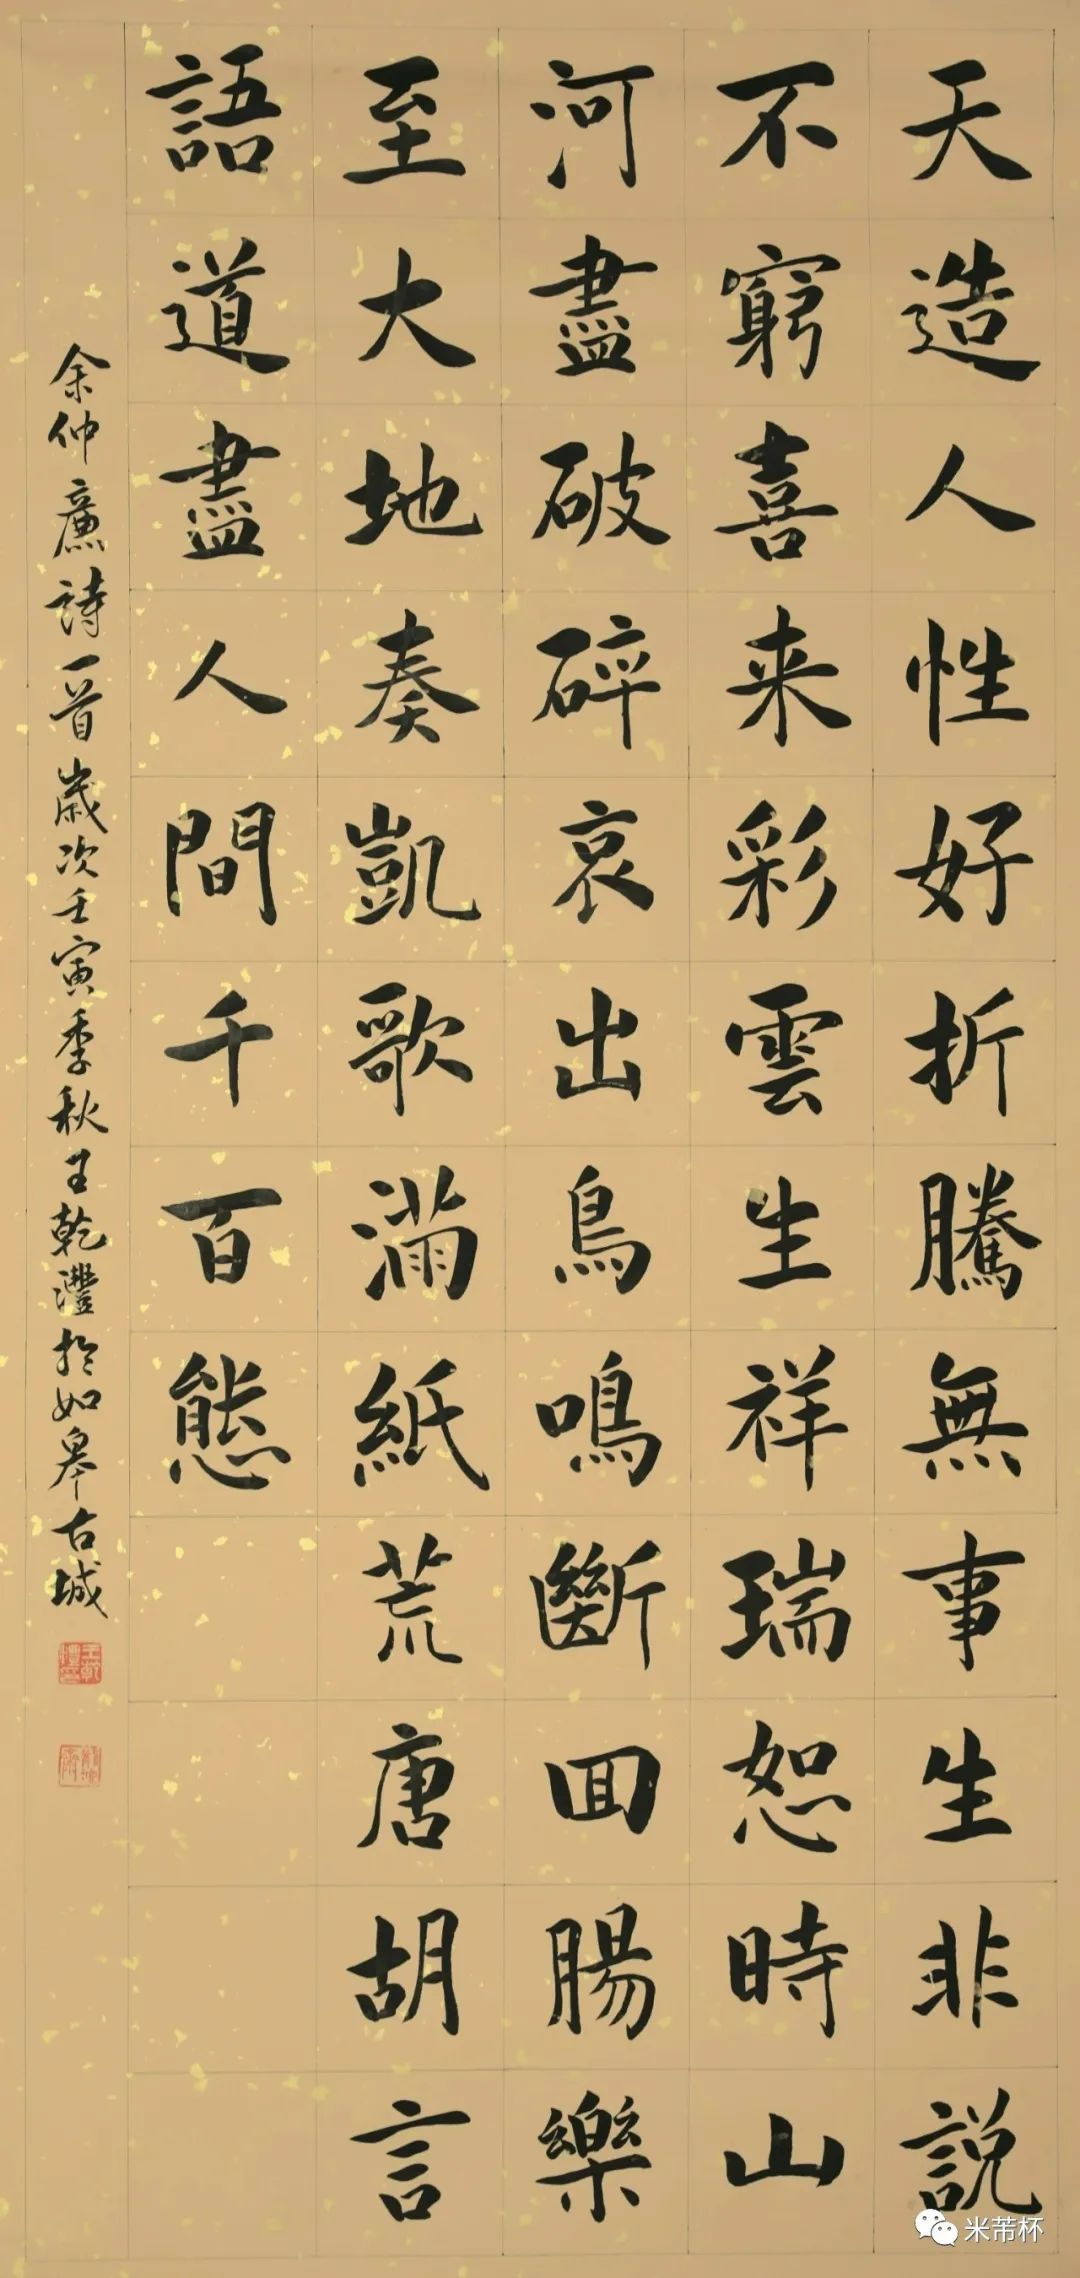 天造人性好折騰無事生非説
不窮喜来彩雲生祥瑞恕時山
河盡破碎哀出鳥鳴斷回腸樂
至大地奏凱歌滿紙荒唐胡言
語道盡人間千百態
余仲廉詩一首歲次壬寅季秋王乾灃於如皋古城
米芾杯